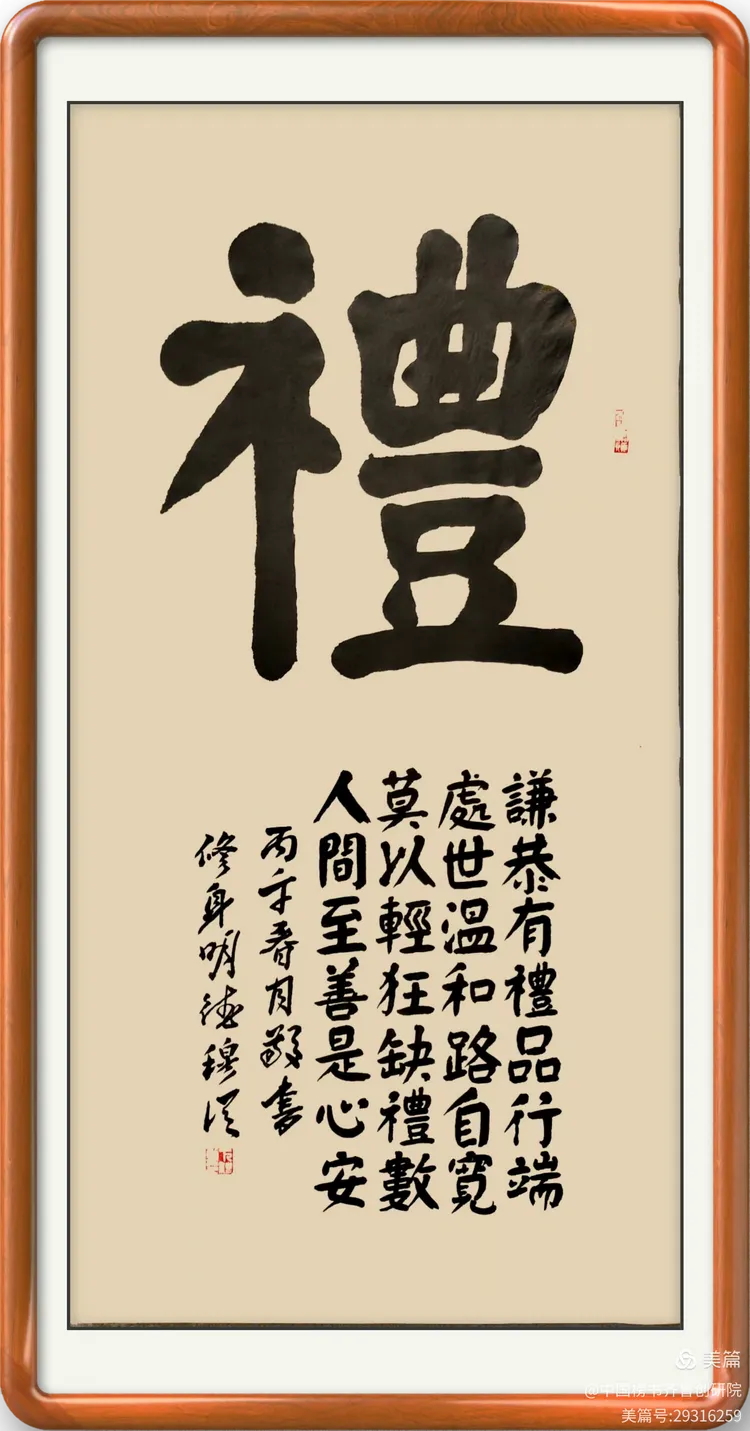 禮
謙恭有禮品行端
處世温和路自寬
莫以輕狂缺禮數
人間至善是心安
丙午春月敬書
修身明德穆
美篇
@中国榜书
创研院
美篇号:29316259